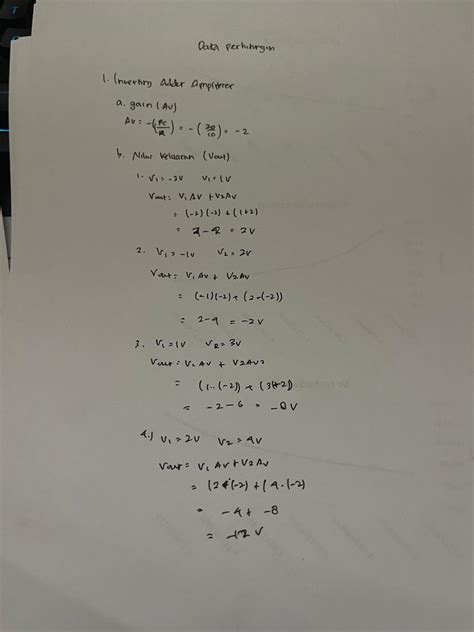 Data perhitungan
1. Inverting Adder Amplifier
a. gain (Av)
Av = -(Rf/R) = -(20/10) = -2
b. Nilai keluaran (Vout)
1. V1 = -2V V1 = 1V
Vout = V1 AV + V2 AV
= (-2)(-2) + (1+2)
= 4 - 2 = 2V
2. V1 = -1V V2 = 2V
Vout = V1 AV + V2 AV
= (-1)(-2) + (2-(-2))
= 2-4 = -2V
3. V1 = 1V V2 = 3V
Vout = V1 AV + V2 AV
= (1.(-2)) + (3(+2))
= -2-6 = -8V
4.) V1 = 2V V2 = 4V
Vout = V1 AV + V2 AV
= (2 (-2) + (4.(-2)
= -4 + -8
= -12 V